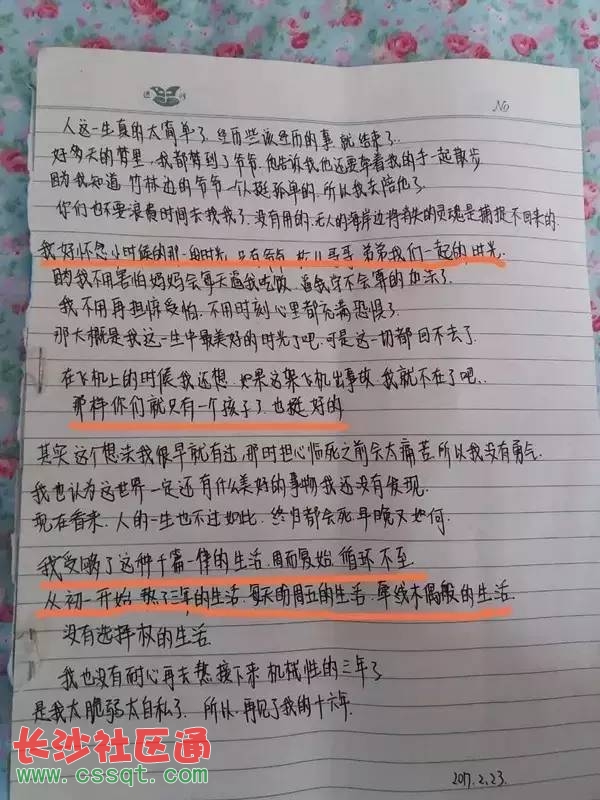 No
人这一生真的太简单了 经历些该经历的事 就结束了..
好多天的梦里,我都梦到了爷爷.他告诉我他还要牵着我的手一起散步
因为我知道 竹林边的爷爷一个人挺孤单的.所以我去陪他了.
你们也不要浪费时间去找我了.没有用的.无人的海岸边将消失的灵魂是捕捉不回来的.
我好怀念小时候的那一段时光,只有爷爷 哥哥 弟弟我们一起的时光.
因为我不用害怕妈妈会每天逼我吃饭.逼我穿不会穿的
我不用再担惊受怕.不用时刻心里都充满恐惧了.
那大概是我这一生中最美好的时光了吧.可是这一切都回不去了.
在飞机上的时候我还想.如果这架飞机出事故.我就不在了吧..
那样你们就只有一个孩子了.也挺好的
其实这个想法我很早就有过.那时担心临死之前会太痛苦.所以我没有勇气.
我也认为这世界一定还有什么美好的事物我还没有发现.
现在看来.人的一生也不过如此.终归都会死.早晚又如何.
我受够了这种千篇一律的生活.周而复始.循环不至.
从初一开始.熬了三年的生活.每天盼周五的生活.牵线木偶般的生活.
没有选择权的生活.
我也没有耐心再去熬接下来机械性的三年了
是我太脆弱太自私了.所以.再见了我的十六年.
2017.2.23.
长沙社区通
www.cssqt.com